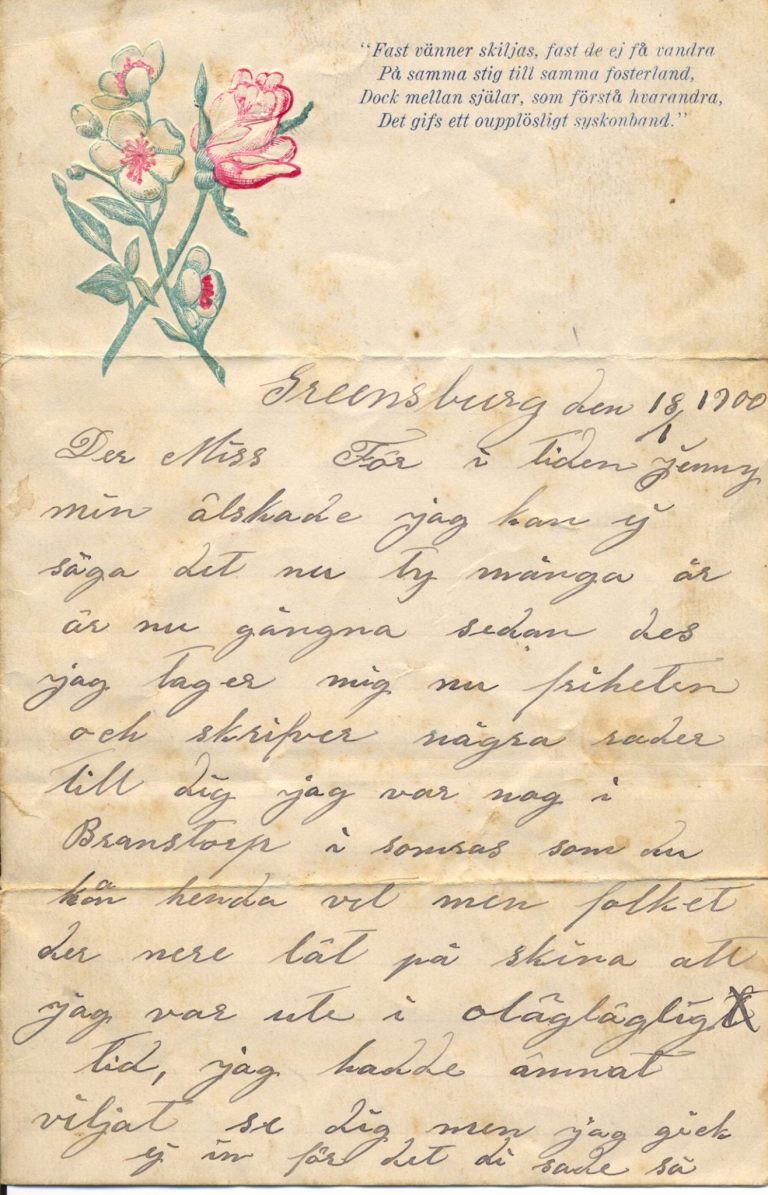 "Fast vänner skiljas, fast de ej få vandra
På samma stig till samma fosterland,
Dock mellan själar, som förstå hvarandra,
Det gifs ett oupplösligt syskonband."
Greensburg den 18/1 1900
Der Miss För i tiden Jenny
min älskade jag kan ej
säga det nu ty många år
är nu gångna sedan des
jag tager mig nu friheten
och skrifver några rader
till dig jag var nog i
Branstorp i somras som du
kan henda vet men folket
der nere lät på skina att
jag var ute i olägläglig
tid, jag hadde ämnat
viljat se dig men jag gick
ej in för det di sade så